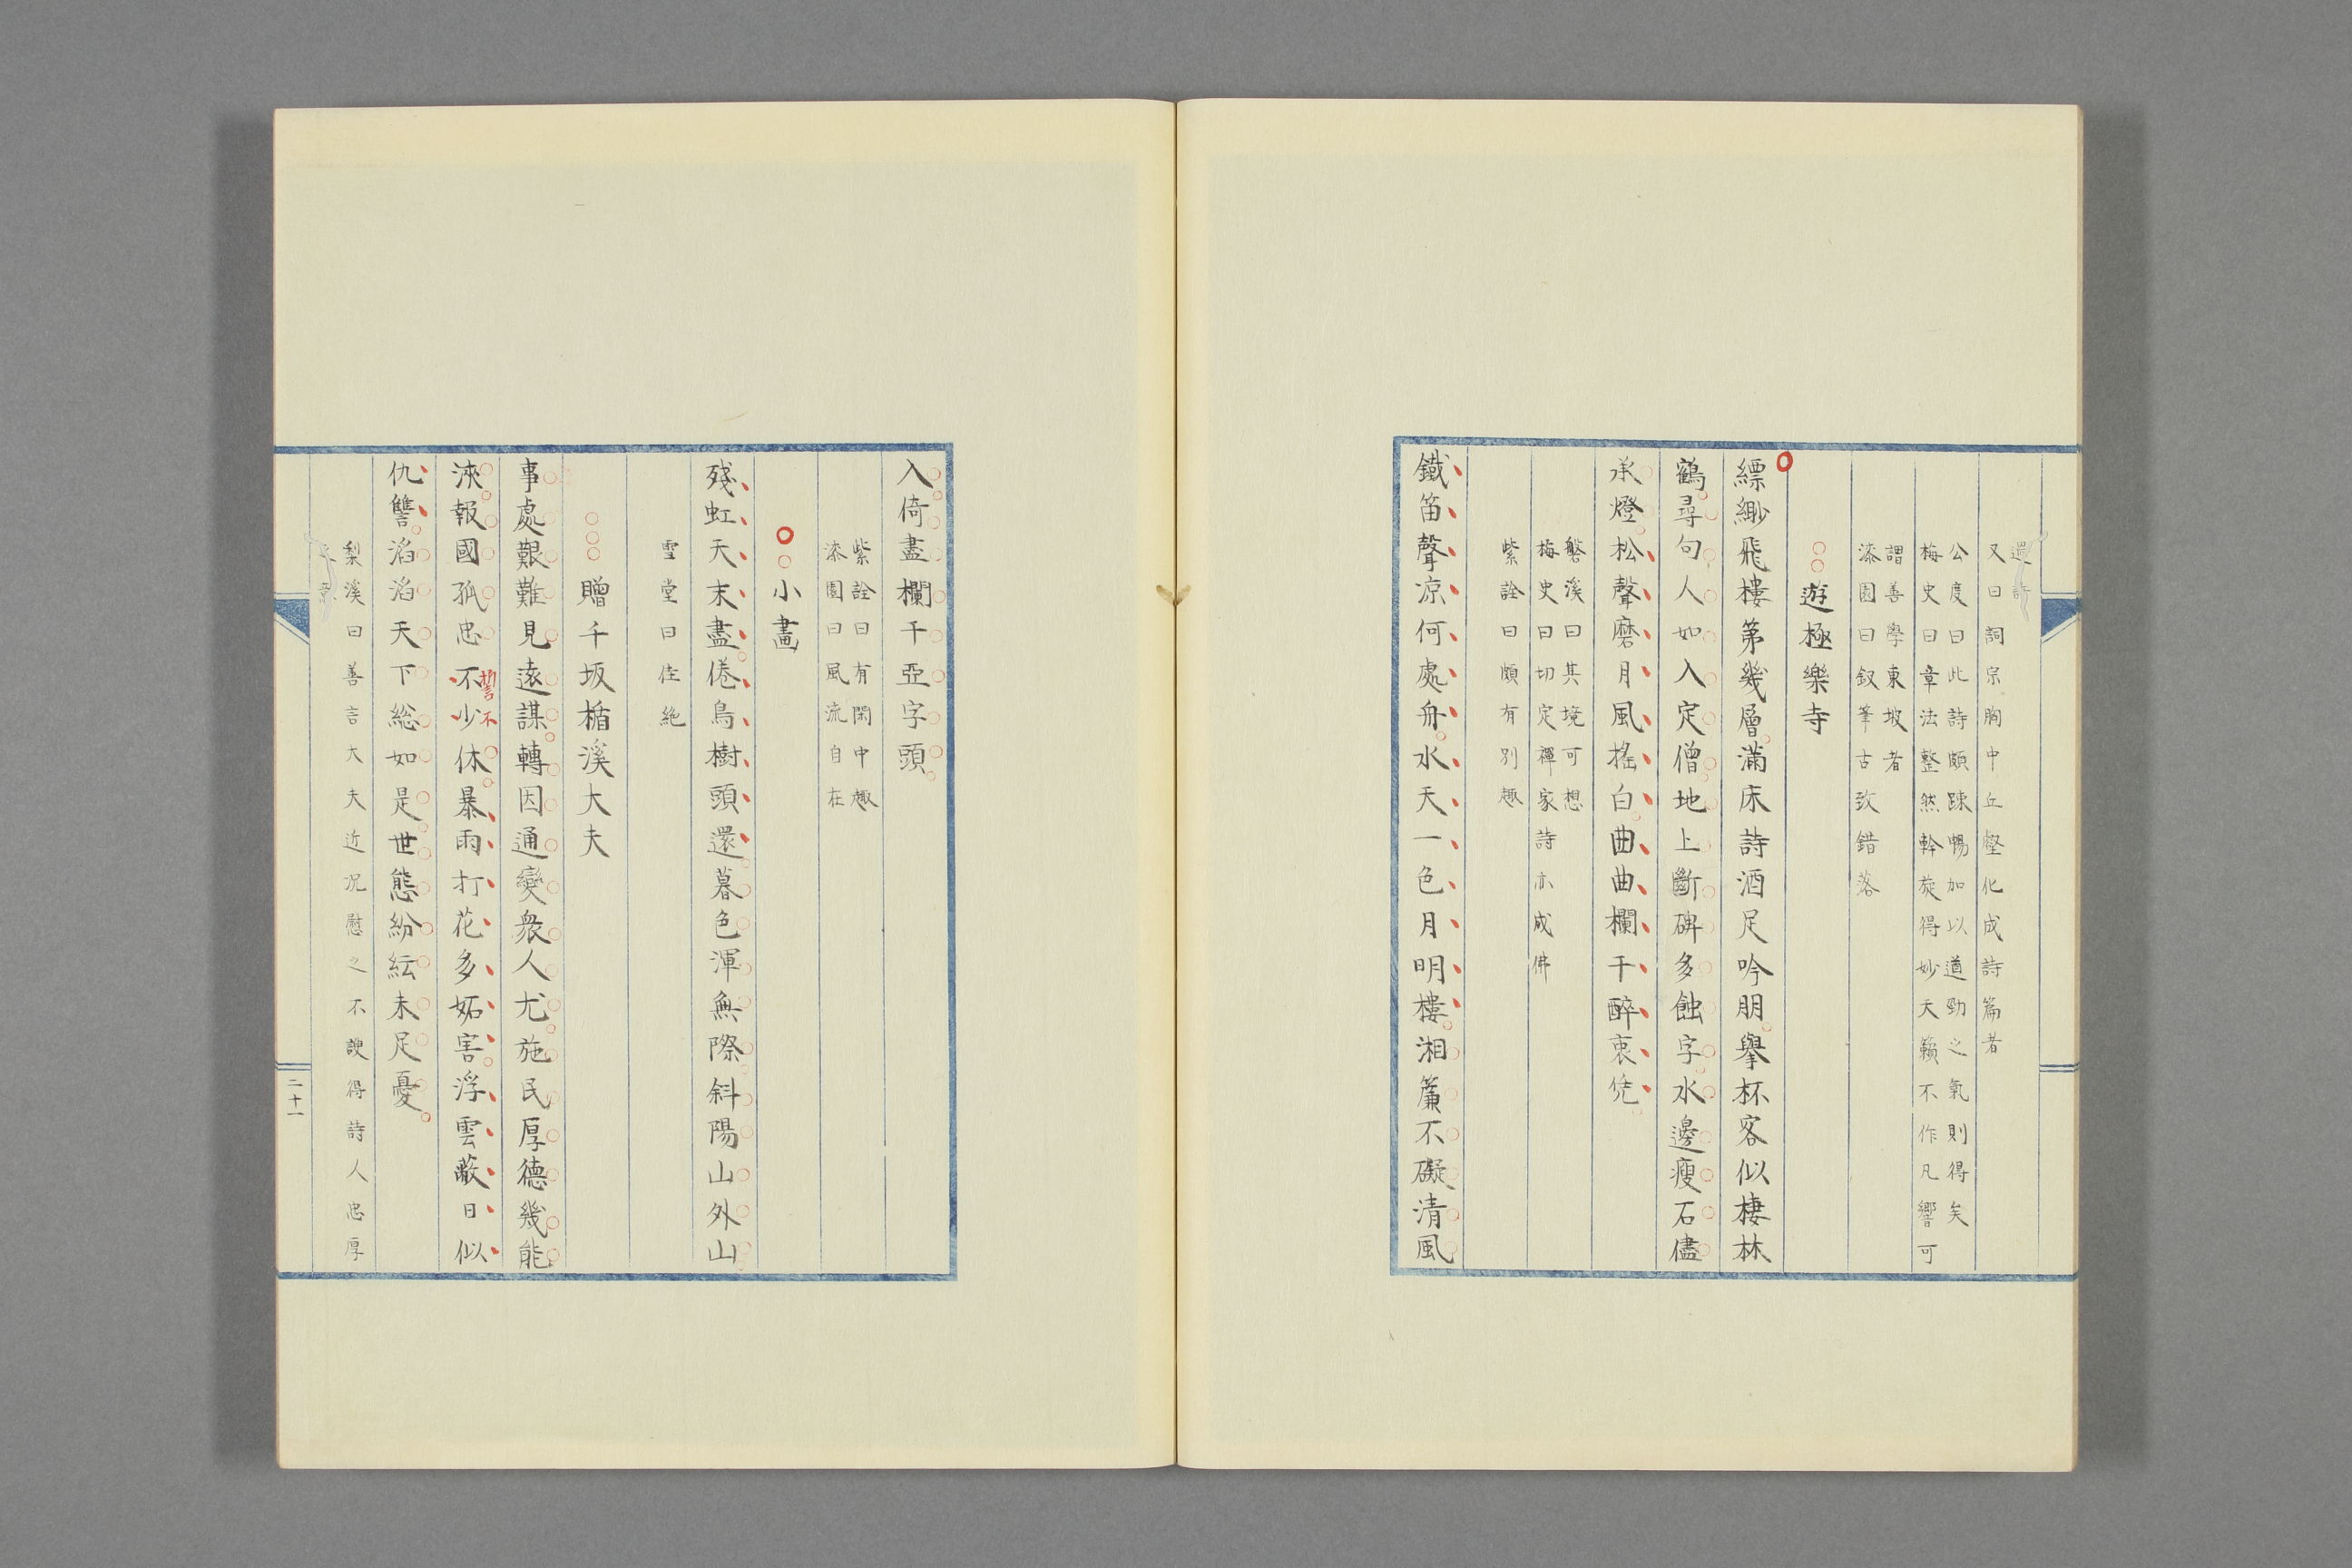 還詩
又曰詞宗胸中丘壑化成詩篇者
公度曰此詩頗踈暢加以遒勁之氣則得矣
梅史曰章法整然斡旋得妙天籟不作凡響可
謂善學東坡者
漆園曰釵筆古致錯落
遊極樂寺
縹緲飛樓第幾層滿床詩酒足吟朋擧杯客似棲林
鶴尋句人如入定僧地上斷碑多蝕字水邊瘦石儘
承燈松聲磨月風搖白曲曲欄干醉裏凭
磐溪曰其境可想
梅史曰切定禪家詩亦成佛
紫詮曰頗有別趣
鐵笛聲凉何處舟水天一色月明樓湘簾不礙清風
入倚盡欄干亞字頭
紫詮曰有閑中趣
漆園曰風流自在
小畵
殘虹天末盡倦鳥樹頭還暮色渾無際斜陽山外山
雪堂曰佳絶
贈千坂楯溪大夫
事處艱難見遠謀轉因通變衆人尤施民厚德幾能
浹報國孤忠不少休暴雨打花多妬害浮雲蔽日似
誓不
仇讐滔滔天下総如是世態紛紜未足憂
梨溪曰善言大夫近况慰之不諛得詩人忠厚
二十一